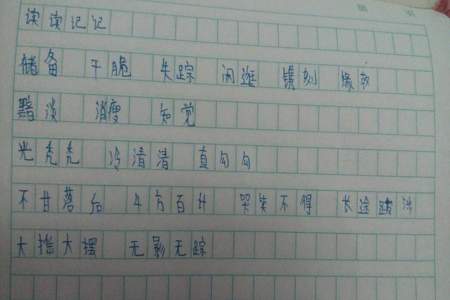 读读记记
储备 干脆 失踪 闲逛
黯淡 消瘦 知觉
光秃秃 冷清清 直勾勾
不甘落后 千方百计 哭笑不得 长途跋涉
大摇大摆 无影无踪